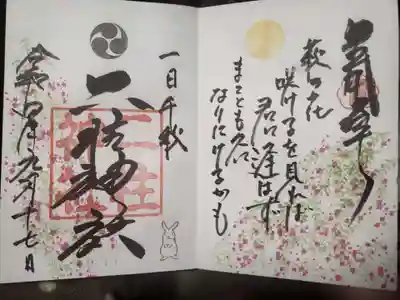 萩の花
咲けるを見れば
君に逢はず
まことも久に
なりにけるかも
一日千秋
二柱神社
令和四年九月十七日